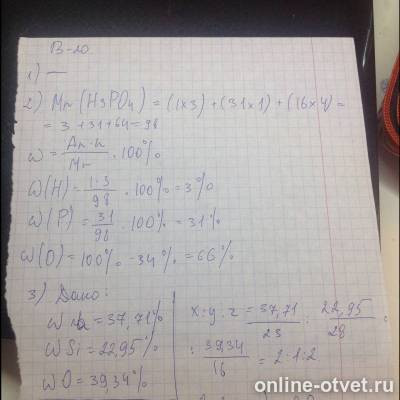 В-10
1) —
2) Mr (H3PO4) = (1x3) + (31x1) + (16x4) =
= 3 + 31 + 64 = 98
ω = Ar·n / Mr · 100%
ω(H) = 1·3 / 98 · 100% = 3%
ω(P) = 31 / 98 · 100% = 31%
ω(O) = 100% - 34% = 66%
3) Дано:
ω Na = 37,71%
ω Si = 22,95%
ω O = 39,34%
x:y:z = 37,71 / 23 : 22,95 / 28 :
: 39,34 / 16 = 2:1:2
online-otvet.ru